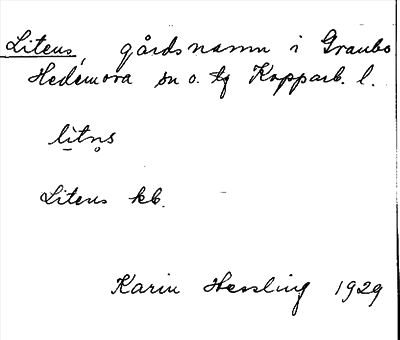 Litens, gårdsnamn i Graubo
Hedemora sn o. tg Kopparb. l.
litn̥s
Litens kb.
Karin Hessling 1929